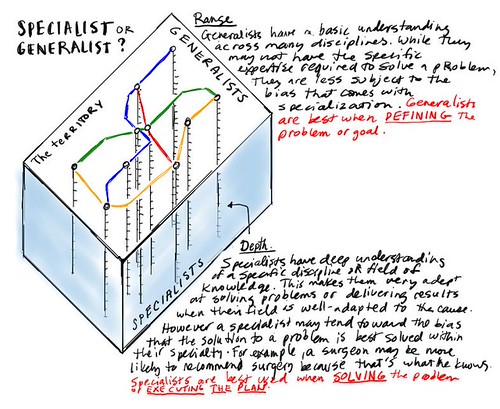 SPECIALIST OR
GENERALIST?
The TERRITORY
GENERALISTS
SPECIALISTS
Range
Generalists have a basic understanding
across many disciplines. While they
may not have the specific
expertise required to solve a problem,
They are less subject to the
bias that comes with
specialization. Generalists
are best when DEFINING the
problem or goal.
Depth
Specialists have deep understanding
of a specific discipline or field of
knowledge. This makes them very adept
at solving problems or delivering results
when their field is well-adapted to the cause.
However a specialist may tend toward the bias
that the solution to a problem is best solved within
their specialty. For example, a surgeon may be more
likely to recommend surgery because that's what he knows.
Specialists are best used when SOLVING the problem
or EXECUTING THE PLAN.